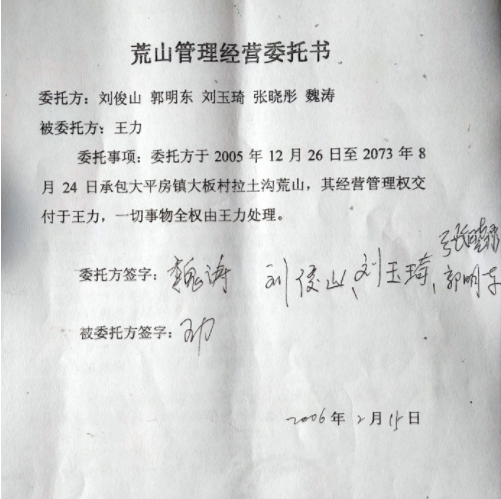 荒山管理经营委托书
委托方：刘俊山 郭明东 刘玉琦 张晓彤 魏涛
被委托方：王力
委托事项：委托方于 2005 年 12 月 26 日至 2073 年 8
月 24 日承包大平房镇大板村拉土沟荒山，其经营管理权交
付于王力，一切事物全权由王力处理。
张晓彤
委托方签字：魏涛 刘俊山、刘玉琦、郭明东
被委托方签字：王力
2006 年 2 月 15 日